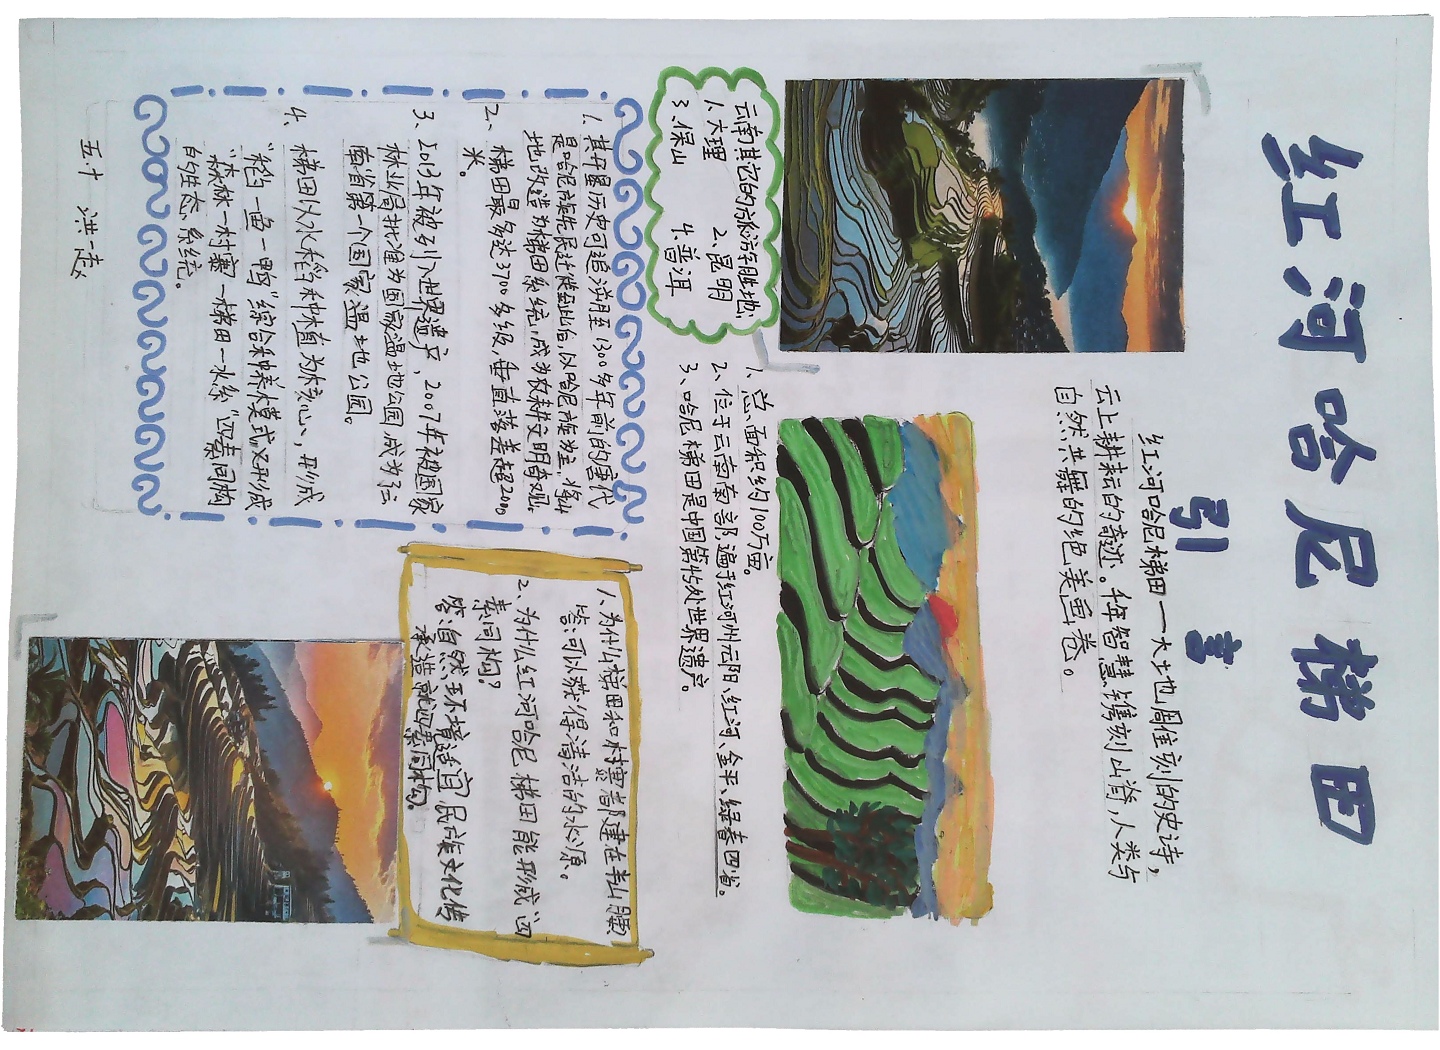 红河哈尼梯田
引言
红河哈尼梯田——大地雕刻的史诗，
云上耕耘的奇迹。千年智慧镌刻山脊，人类与
自然共舞的绝美画卷。
云南其它的旅游胜地：
1、大理 2、昆明
3、保山 4、普洱
1、总面积约100万亩。
2、位于云南南部，遍于红河州元阳、红河、金平、绿春四省。
3、哈尼梯田是中国第45处世界遗产。
1、其开垦历史可追溯月至1300多年前的唐代
是哈尼族先民迁徙至此后，以哈尼族为主，将山
地改造为梯田系统，成为农耕文明奇观。
2、梯田最多达3700多级，垂直落差超2000
米。
3、2013年被列入世界遗产，2007年被国家
林业局批准为国家湿地公园成为云
南省第一个国家湿地公园。
4、梯田以水稻种植为核心，形成
“稻一鱼一鸭”综合种养模式又形成
“森林一村寨一梯田一水系”四素同构
的生态系统。
1、为什么梯田和村寨都建在半山腰
答：可以获得清洁的水源。
2、为什么红河哈尼梯田能形成“四
素同构？
答：自然环境适宜民族文化传
承造就四素同构。
五十 洪